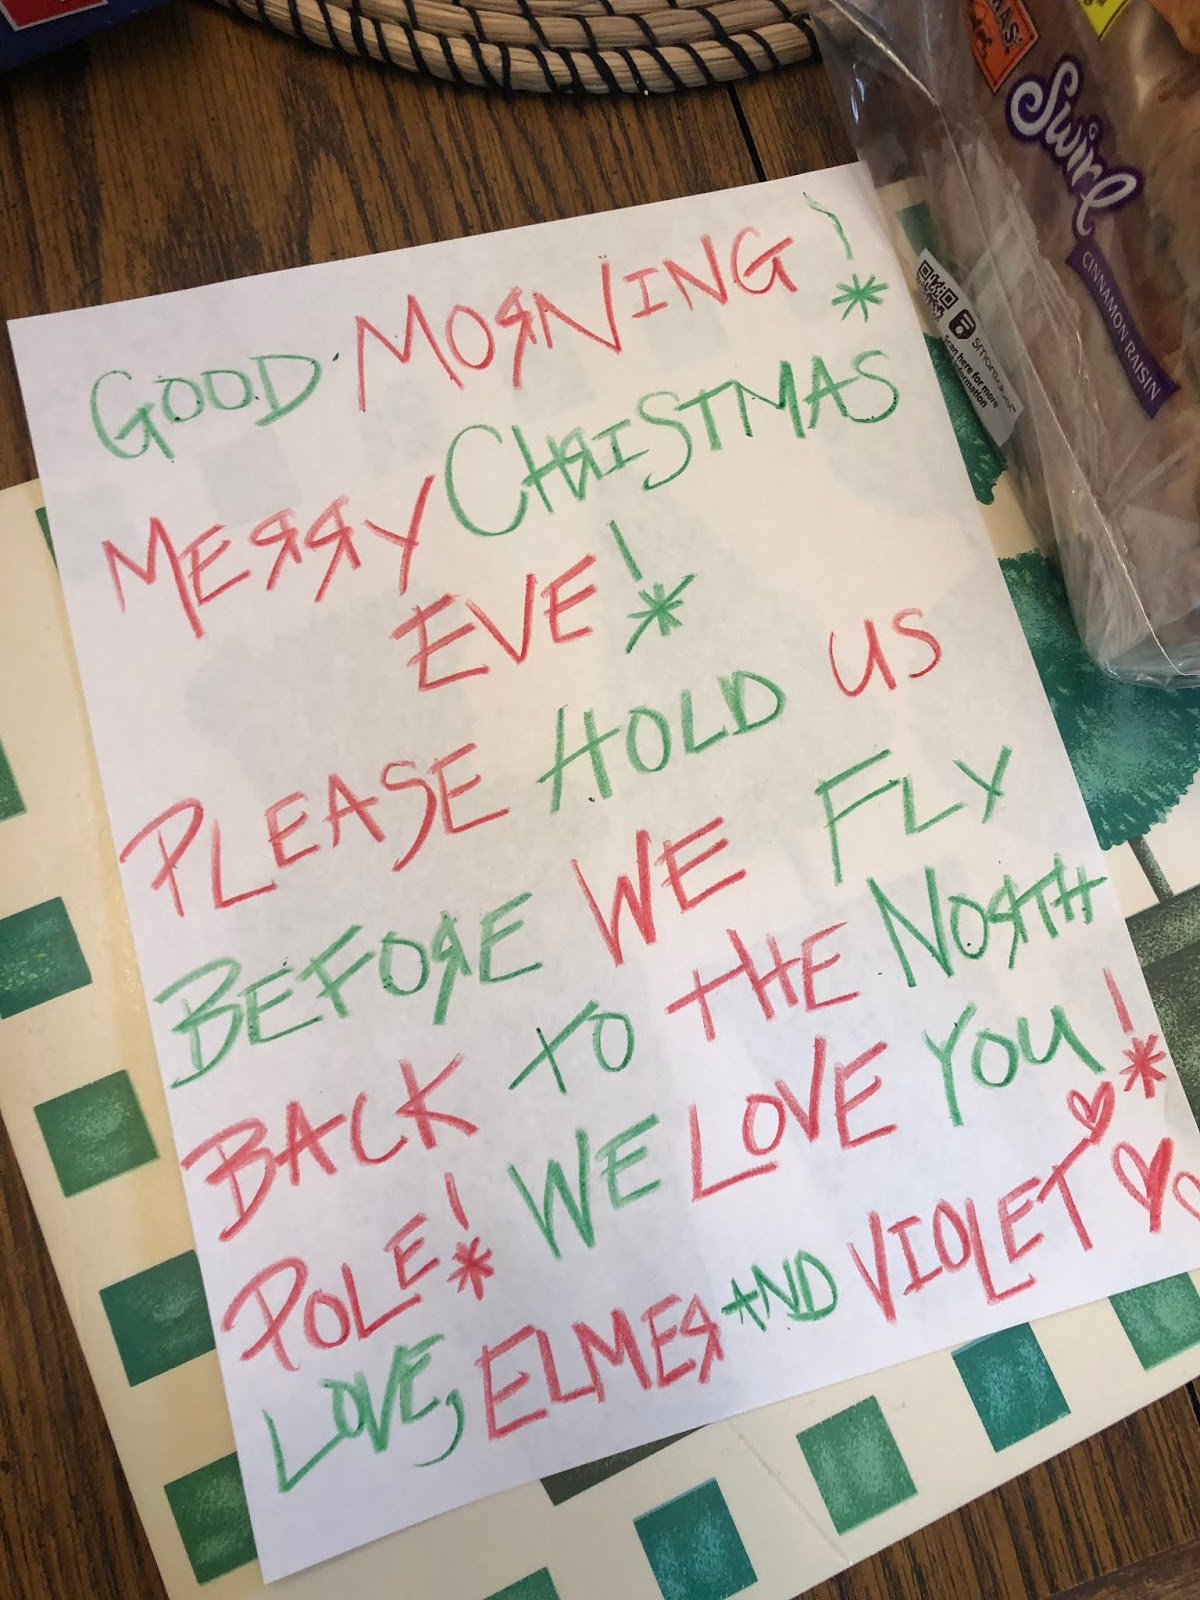 GOOD MORNING!
MERRY CHRISTMAS
EVE!
PLEASE HOLD US
BEFORE WE FLY
BACK TO THE NORTH
POLE! WE LOVE YOU!
LOVE, ELMER AND VIOLET
Swirl
CINNAMON RAISIN
Scan here for more
information